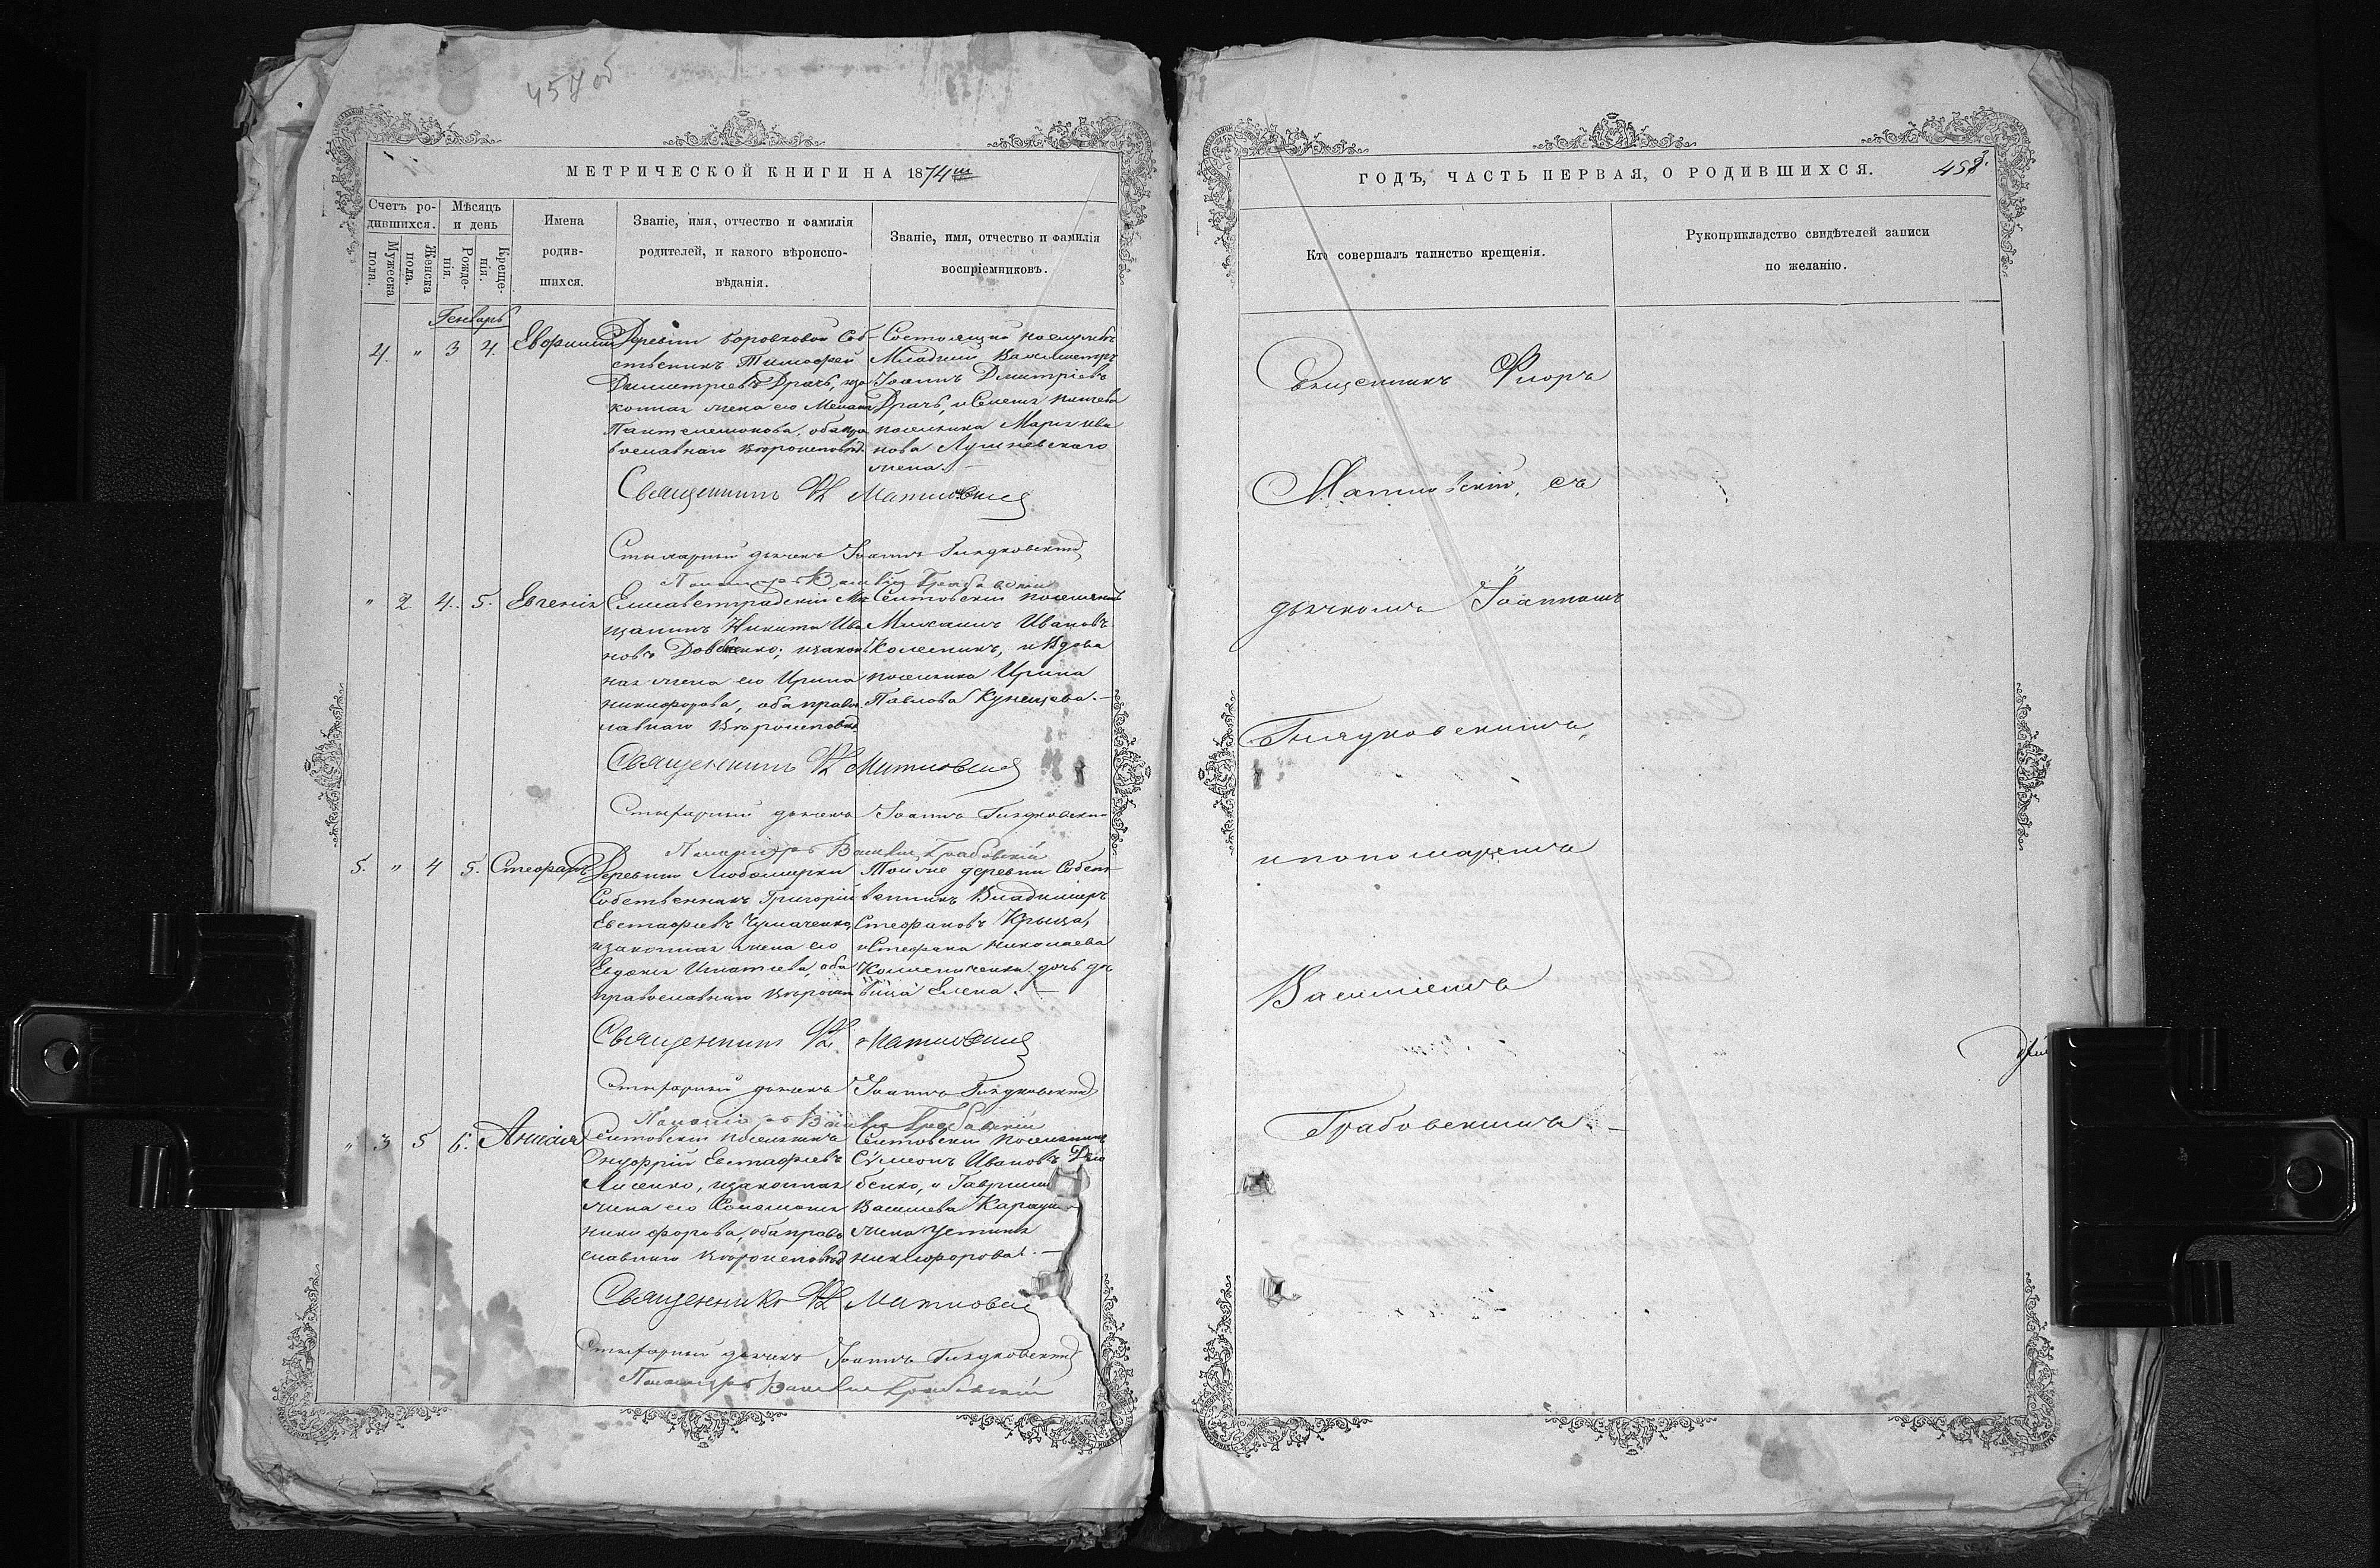 457 об
МЕТРИЧЕСКОЙ КНИГИ НА 1874й
Счетъ ро-
дившихся.
Мужеска
пола.
Женска
пола.
Мѣсяцъ
и день
Рожде-
нія.
Креще-
нія.
Имена
родив-
шихся.
Званіе, имя, отчество и фамилія
родителей, и какого вѣроиспо-
вѣданія.
Званіе, имя, отчество и фамилія
воспріемниковъ.
Генварь
4. " 3 4.
Деревни Боровковой Соб-
ственникъ Тимофей
Димитріевъ Драчь, иза
конная жена его
Пантелеимонова, оба пра
вославнаго вѣроисповѣд.
Младшій Вахмистръ
Іоаннъ Дмитріевъ
Драчь, и
поселянка Марія Ива
нова
жена. —
Священникъ Ѳ Матковскій
Стихарный дьячекъ Іоаннъ Гвяздковскій
Пономарь Василій Грабовскій
" 2 4. 5. Евгенія
Елисаветградскій Мѣ
щанинъ Никита Ива
новъ Довбненко, изакон
ная жена его Ирина
Никифорова, оба правос
лавнаго вѣроисповѣд.
Сентовскій поселянинъ
Михаилъ Ивановъ
Колесникъ, и Вдова
поселянка Ирина
Павлова Кунецова. —
Священникъ Ѳ Матковскій
Стихарный дьячекъ Іоаннъ Гвяздковскій
Пономарь Василій Грабовскій
5. " 4 5. Стефанъ
Деревни Любомирки
Собственникъ Григорій
Евстафіевъ Чумаченко,
изаконная жена его
Евдокія Игнатіева, оба
православнаго вѣроисп
Тойже деревни Собст-
венникъ Владимиръ
Стефановъ Крыца,
иСтефана Николаева
дочь дѣ
вица Елена. —
Священникъ Ѳ Матковскій
Стихарный дьячекъ Іоаннъ Гвяздковскій
Пономарь Василій Грабовскій
" 3 5 6. Анисія
Сентовскій поселянинъ
Онуфрій Евстафіевъ
Лисенко, изаконная
жена его Соломонія
Никифорова, оба право
славнаго вѣроисповѣд
Сентовскій поселянинъ
Сѵмеонъ Ивановъ Дзю
бенко, и
Васильева
жена Устинія
Никифорова. —
Священникъ Ѳ Матковскій
Стихарный дьячекъ Іоаннъ Гвяздковскій
Пономарь Василій Грабовскій
ГОДЪ, ЧАСТЬ ПЕРВАЯ, О РОДИВШИХСЯ.
458
Кто совершалъ таинство крещенія.
Рукоприкладство свидѣтелей записи
по желанію.
Священникъ Флоръ
Матковскій, съ
дьячкомъ Іоанномъ
Гвяздковскимъ,
и пономаремъ
Василіемъ
Грабовскимъ. —